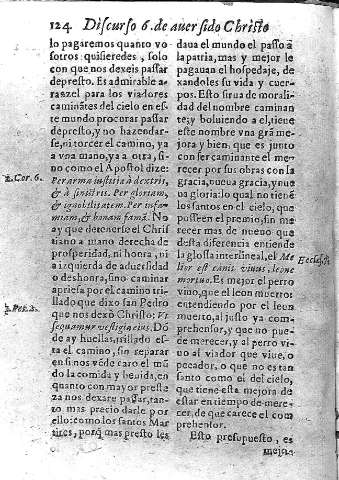 124 Discurso 6. de auer sido Christo
lo pagaremos quanto vo
sotros quisieredes, solo
con que nos dexeis passar
depresto. Es admirable a-
ranzel para los viadores
caminãtes del cielo en es-
te mundo procurar passar
depresto, y no hazendar-
se, ni torcer el camino, ya
a vna mano, ya a otra, si-
no como el Apostol dize:
2. Cor. 6.
Per arma iustitiæ à dextris,
& à sinistris. Per gloriam,
& ignobilitatem. Per infa-
miam, & bonam famã. No
ay que derenerse el Chris
tiano a mano derecha de
prosperidad, ni honra, ni
a izquierda de aduersidad
o deshonra, sino caminar
apriesa por el camino tri-
llado que dixo san Pedro
que nos dexò Christo: Vt
sequamur vestigia eius. Dõ
de ay huellas, trillado es-
ta el camino, sin reparar
en si nos vẽde caro el mũ
do la comida y beuida, en
quanto con mayor preste
za nos dexare passar, tan-
to mas precio darle por
ello: como los santos Mar
tires, porq̃ mas presto les
daua el mundo el passo à
la patria, mas y mejor le
pagauan el hospedaje, de
xandoles su vida y cuer-
pos. Esto sirua de morali-
dad del nombre caminan
te; y boluiendo a el, tiene
este nombre vna grã mejo
ra y bien, que es junto
con ser caminante el me-
recer por sus obras con la
gracia, nueua gracia, y nue
ua gloria: lo qual no tiene
los santos en el cielo, que
possẽen el premio, sin me
recer mas de nueuo que
desta diferencia entiende
la glossa interlineal, el Me
Ecclesi. 9
lior est canis viuus, leone
mortuo. Es mejor el perro
viuo, que el leon muerto:
entendiendo por el leon
muerto, al justo ya com-
prehensor, y que no pue-
de merecer, y al perro vi-
uo al viador que viue, o
pecador, o que no es tan
santo como el del cielo,
que tiene esta mejora de
estar en tiempo de mere-
cer, de que carece el com
prehensor.
Esto presupuesto, es
mejora